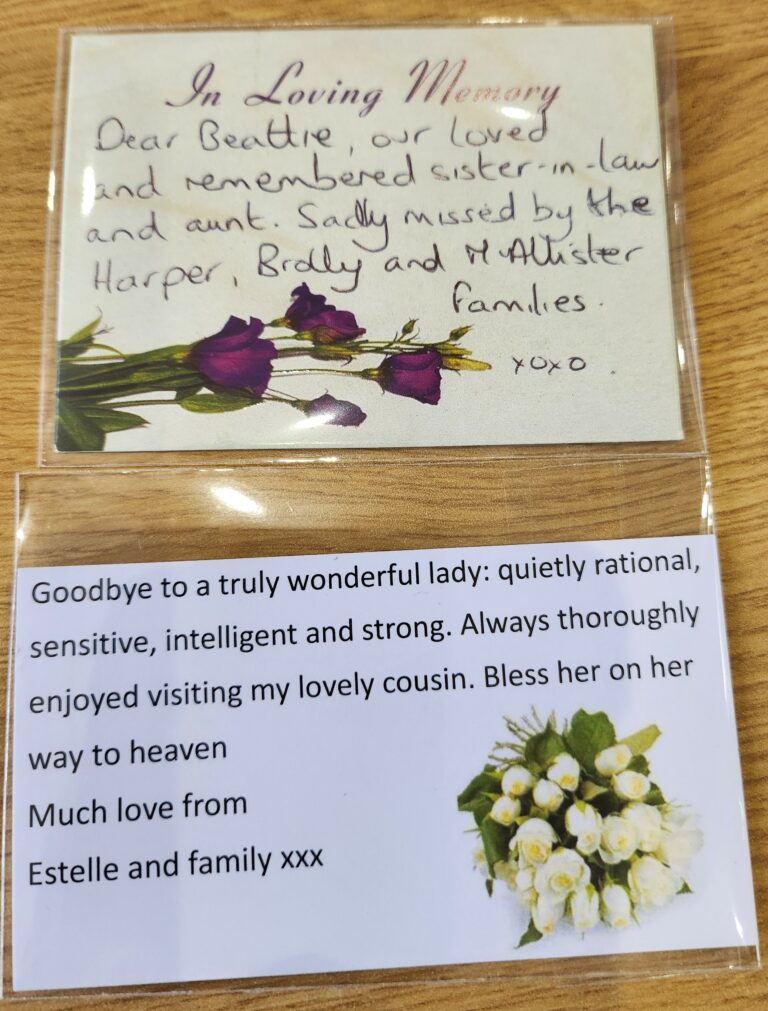 In Loving Memory
Dear Beattie, our loved
and remembered sister-in-law
and aunt. Sadly missed by the
Harper, Brolly and McAllister
families.
xoxo.
Goodbye to a truly wonderful lady: quietly rational,
sensitive, intelligent and strong. Always thoroughly
enjoyed visiting my lovely cousin. Bless her on her
way to heaven
Much love from
Estelle and family xxx